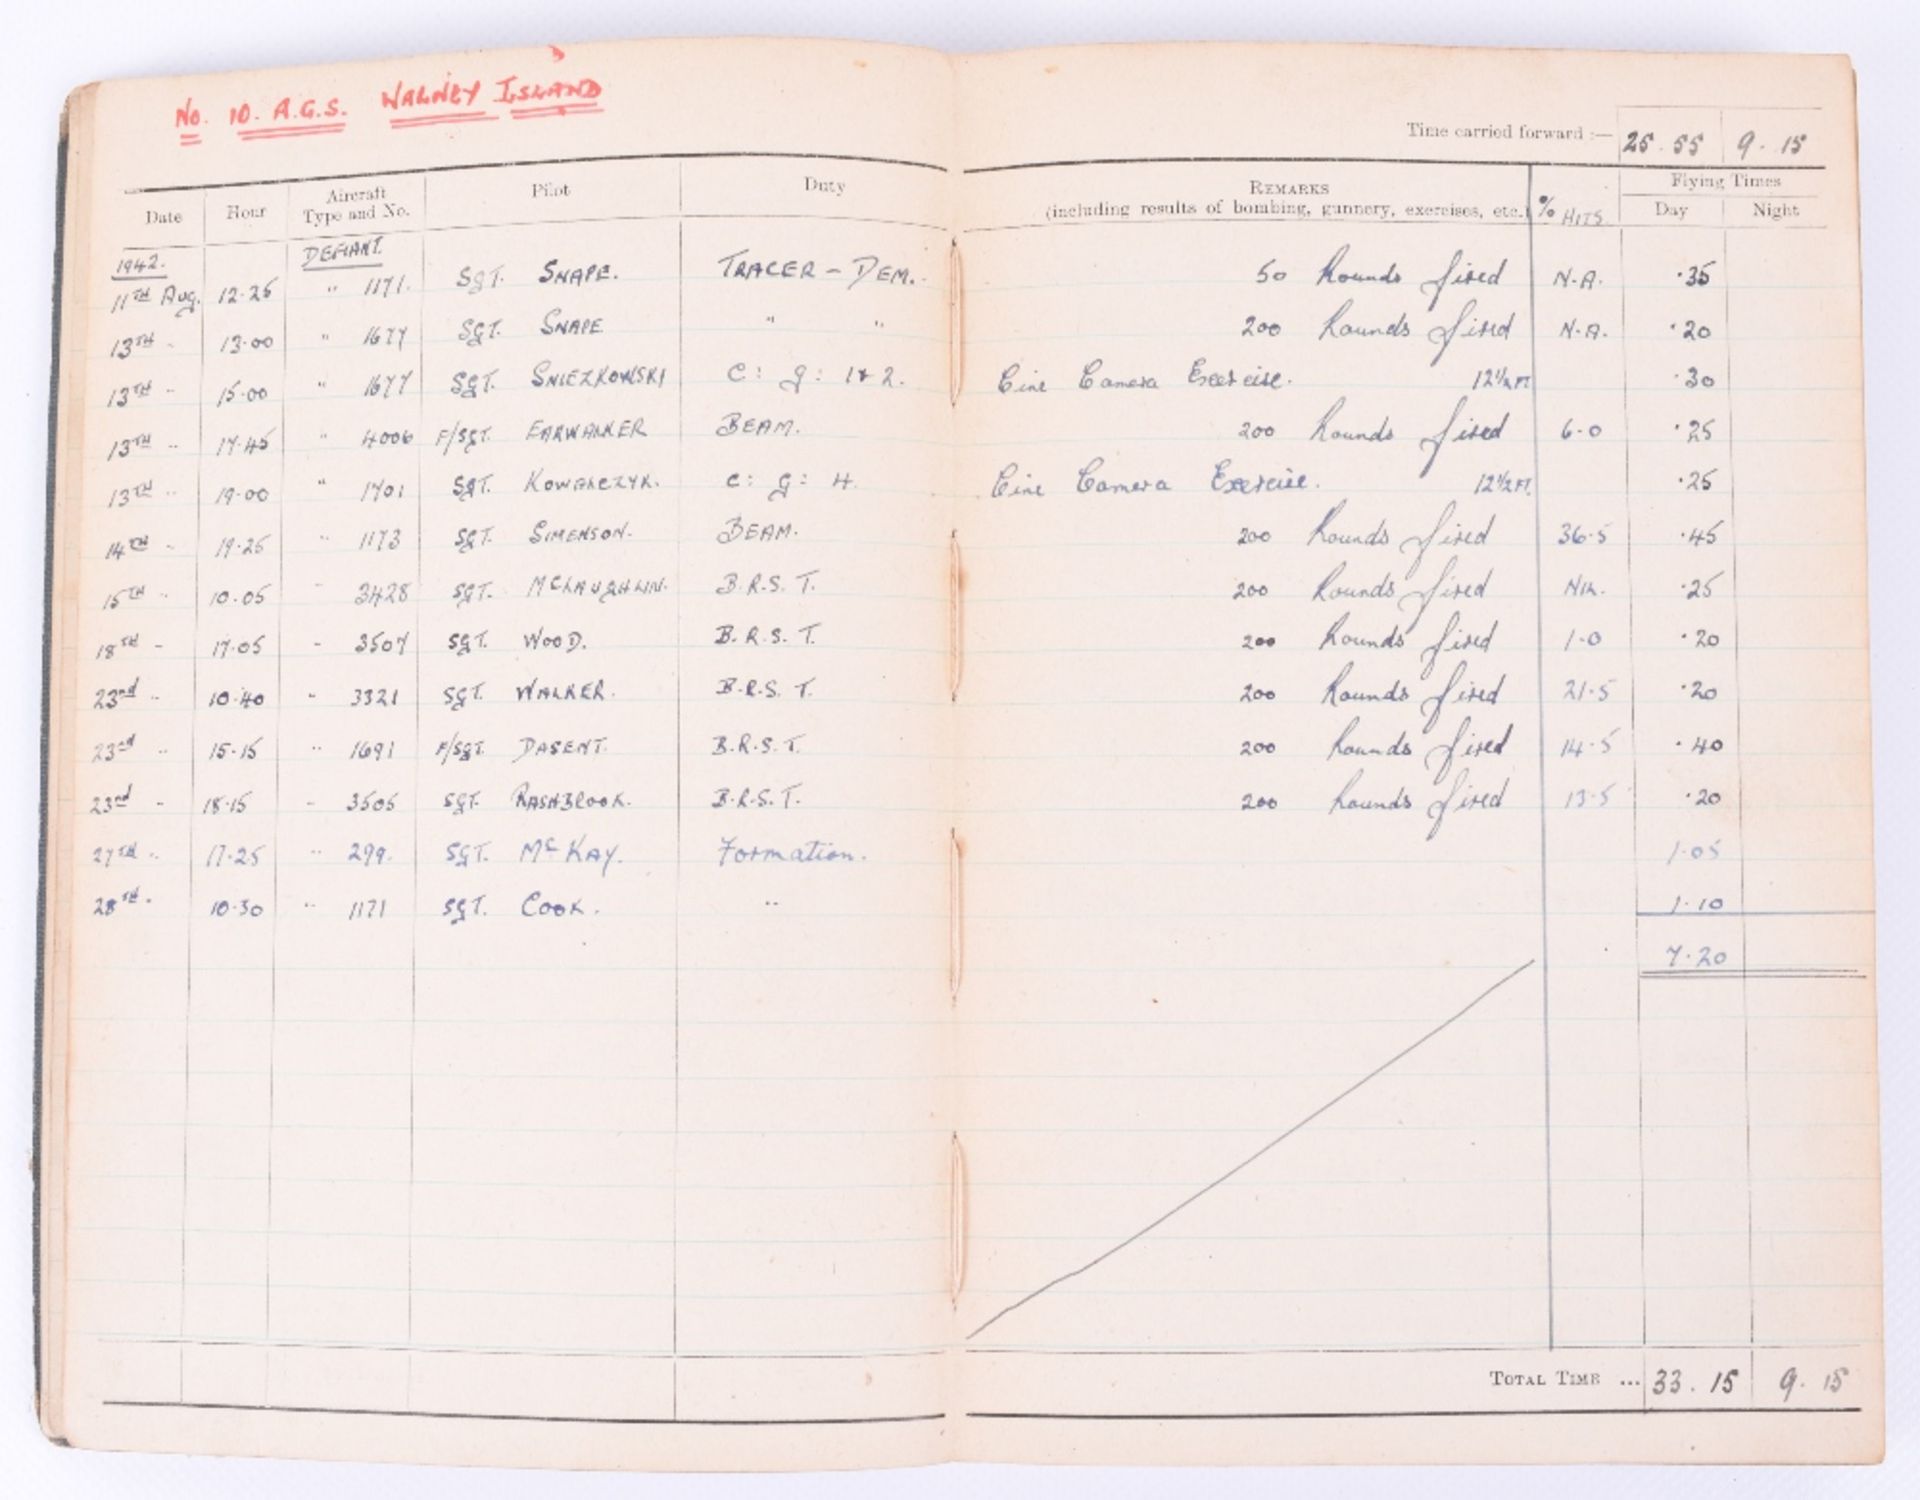 No. 10. A.G.S. WALNEY ISLAND
Time carried forward :— 25.55 9.15
Date Hour Aircraft Type and No. Pilot Duty REMARKS (including results of bombing, gunnery, exercises, etc.) % HITS Flying Times Day Night
1942. DEFIANT.
11TH Aug. 12.25 " 1171. SGT. SNAPE. TRACER - DEM. 50 Rounds fired N.A. .35
13TH " 13.00 " 1677 SGT. SNAPE " " 200 Rounds fired N.A. .20
13TH " 15.00 " 1677 SGT. SNIEZKOWSKI C: G: 1+2. Cine Camera Exercise. 12½FT .30
13TH " 17.45 " 4006 F/SGT. EARWALKER BEAM. 200 Rounds fired 6.0 .25
13TH " 19.00 " 1701 SGT. KOWALCZYK. C: G: 4. Cine Camera Exercise. 12½FT. .25
14TH " 19.25 " 1173 SGT. SIMENSON. BEAM. 200 Rounds fired 36.5 .45
15TH " 10.05 " 3428 SGT. MCLAUGHLIN. B.R.S.T. 200 Rounds fired NIL. .25
18TH " 17.05 " 3507 SGT. WOOD. B.R.S.T. 200 Rounds fired 1.0 .20
23nd " 10.40 " 3321 SGT. WALKER. B.R.S.T. 200 Rounds fired 21.5 .20
23nd " 15.15 " 1691 F/SGT. DASENT. B.R.S.T. 200 Rounds fired 14.5 .40
23nd " 18.15 " 3505 SGT. RASHBROOK. B.R.S.T. 200 Rounds fired 13.5 .20
27TH " 17.25 " 299. SGT. McKAY. Formation. 1.05
28TH " 10.30 " 1171 SGT. COOK. " 1.10
7.20
TOTAL TIME ... 33.15 9.15